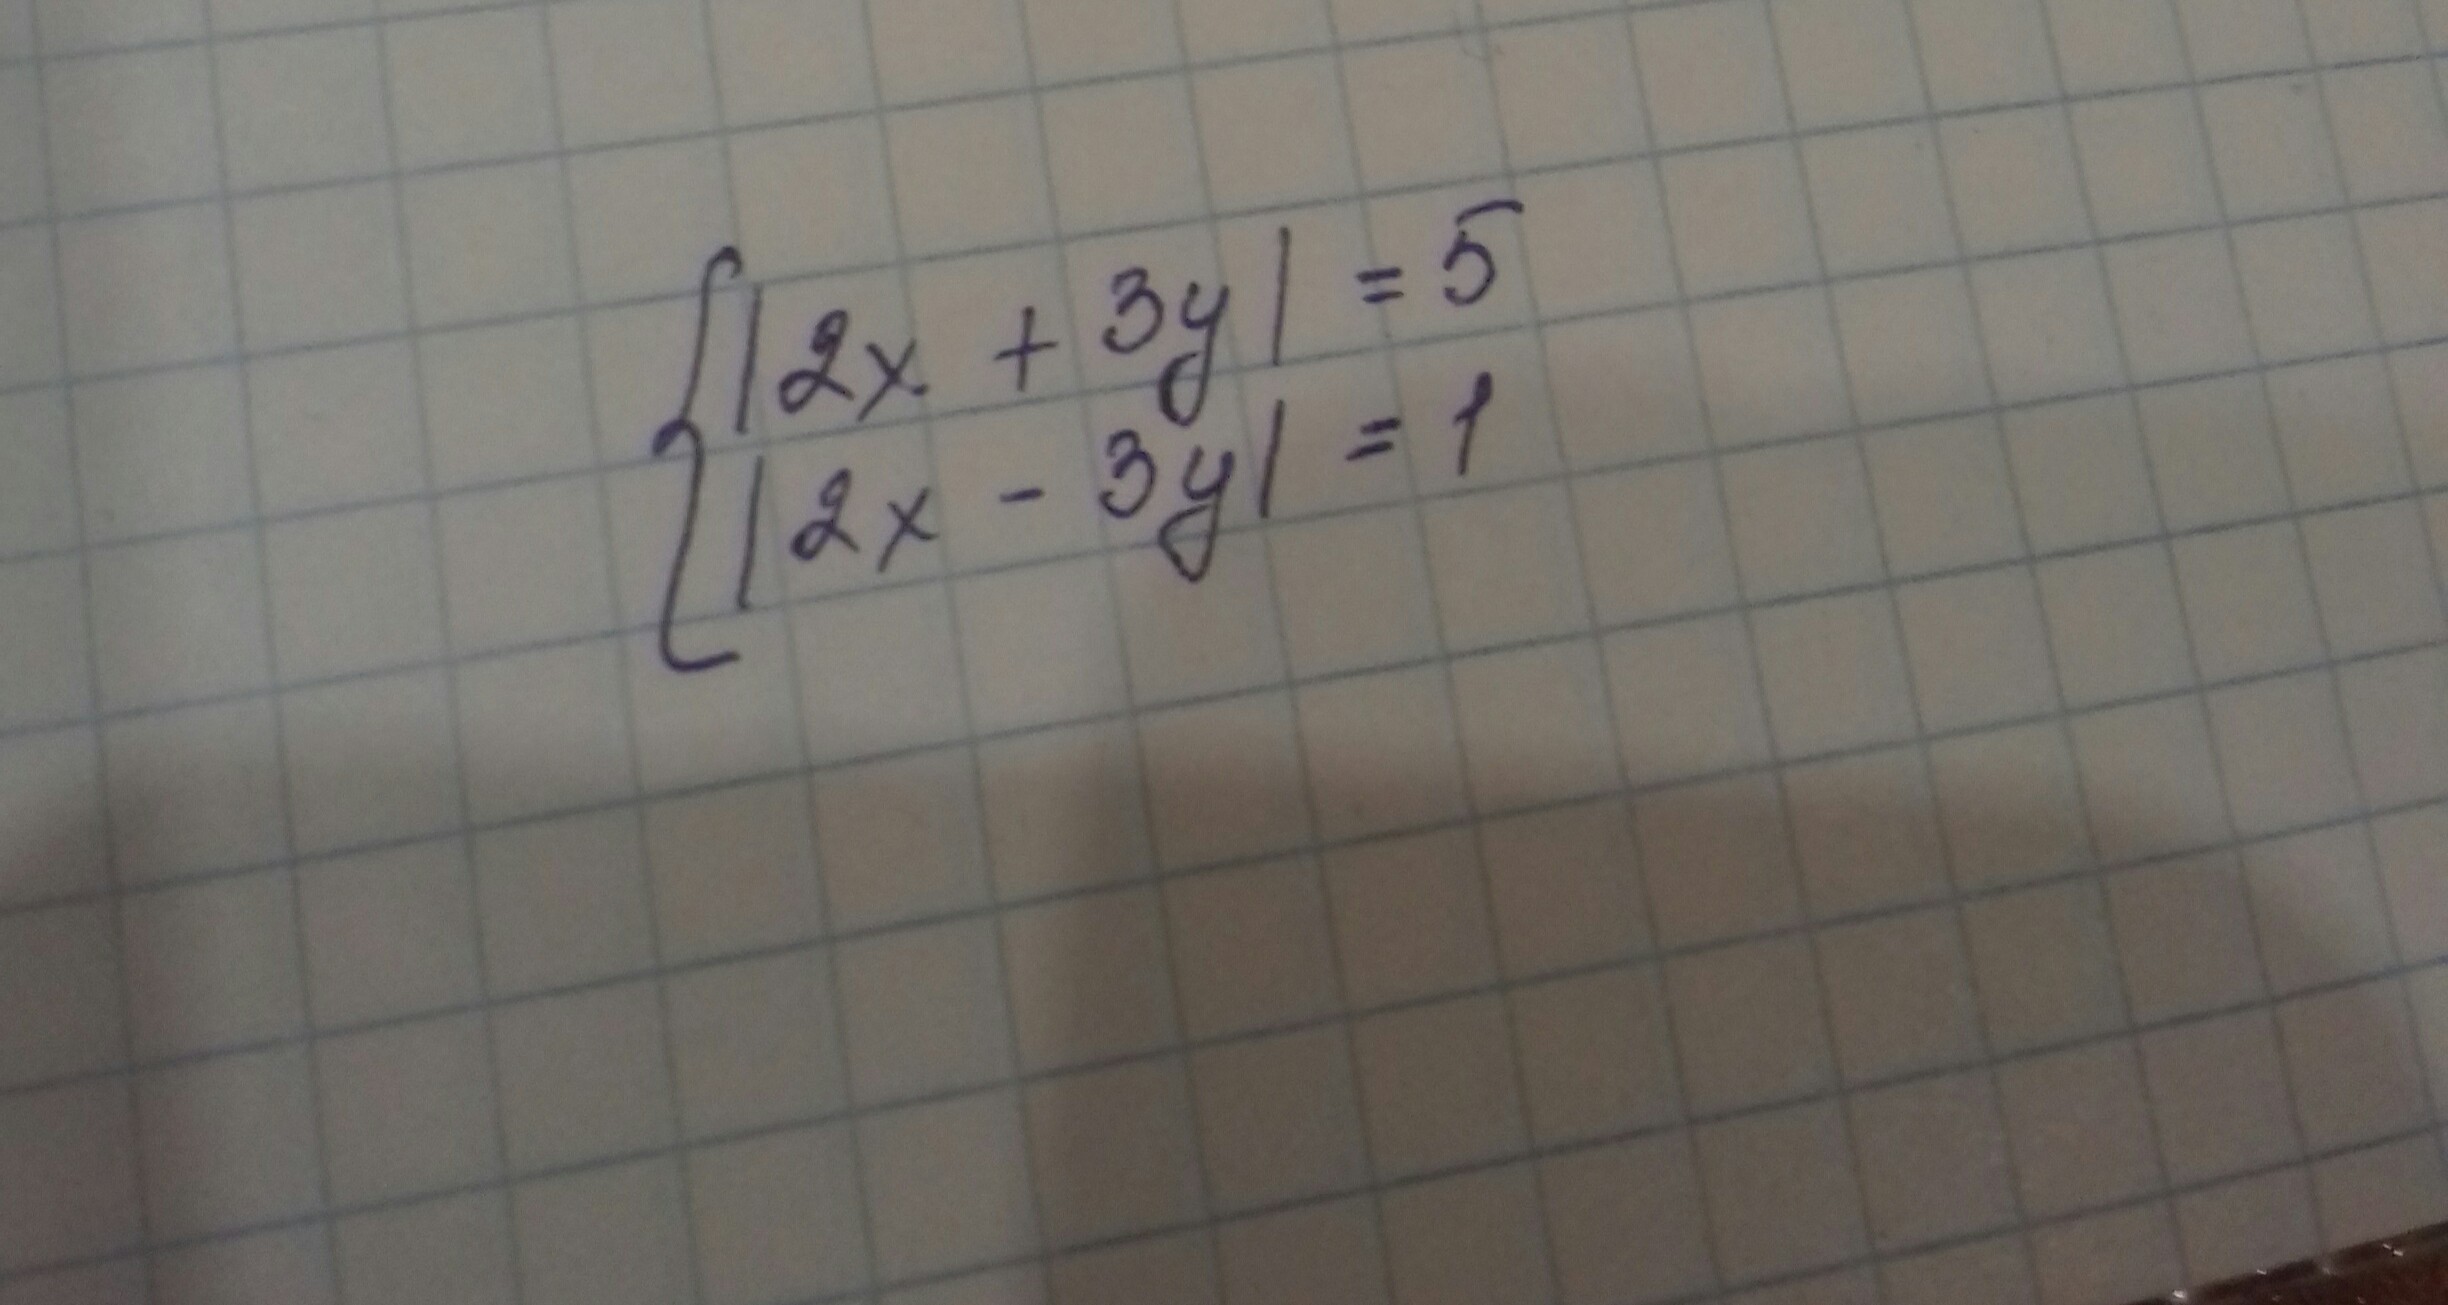 |2x + 3y| = 5
|2x - 3y| = 1